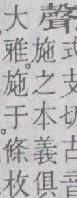 聲
式支切古音
施之本義俱
大雅。施于條枚